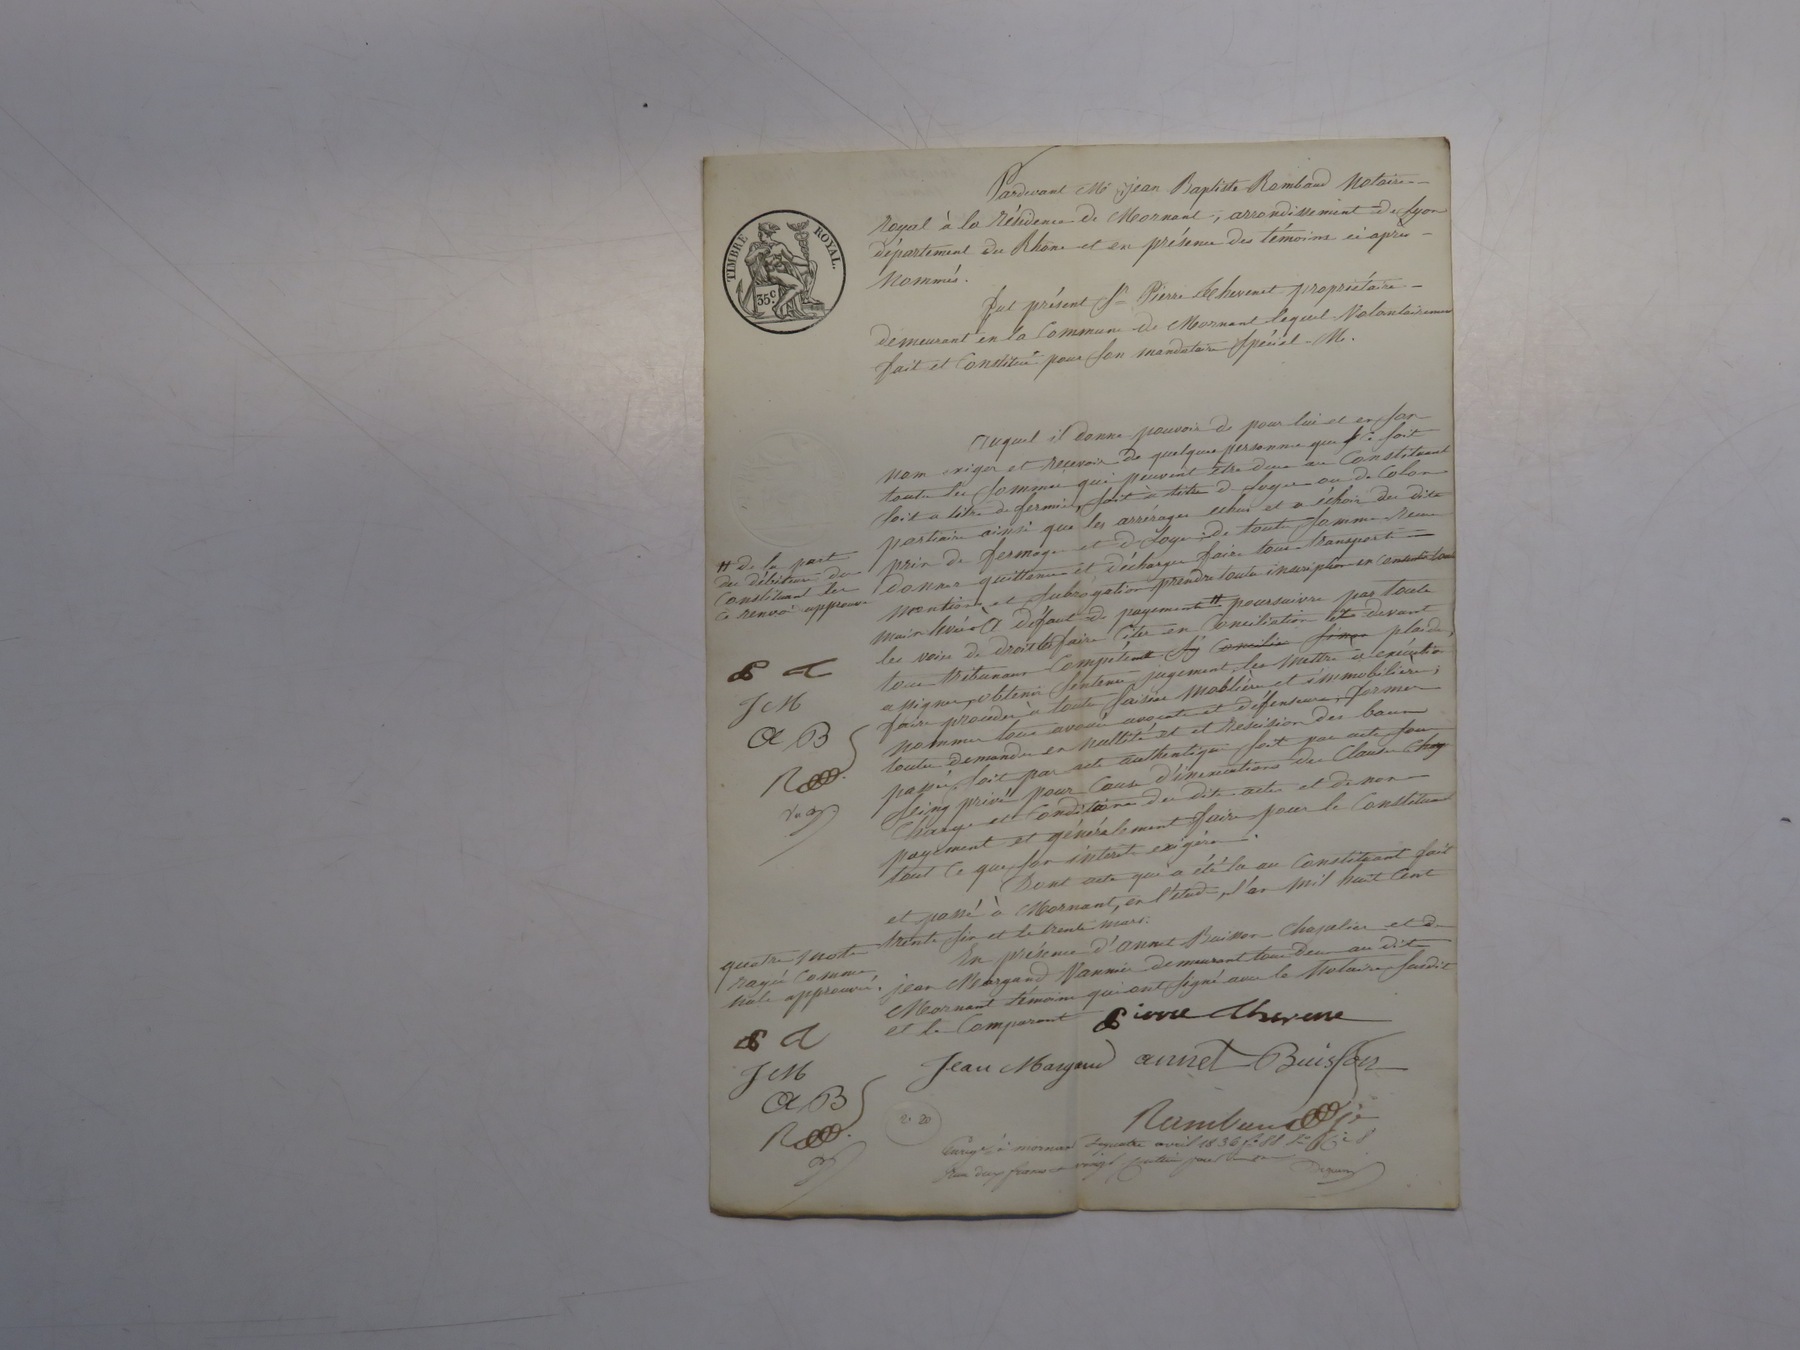 Pardevant Me jean Baptiste Rambaud Notaire
Royal à la Résidence de Mornant, arrondissement de Lyon
département du Rhône et en présence des témoins ci après
Nommés.
TIMBRE ROYAL.
35c
fut présent Sr Pierre Thevenet propriétaire
demeurant en la Commune de Mornant lequel Volontairement
fait et Constitue pour son mandataire spécial M.
auquel il donne pouvoir de pour lui et en son
nom exiger et recevoir de quelque personne que ce soit
toutes les sommes qui peuvent être dues au Constituant
soit a titre de fermier, soit à titre de loyer ou de Colon
partiaire ainsi que les arrérages echus et a échoir des dits
prix de fermage et de loyer; de toute somme reçue
donner quittance et décharge faire tous transports
mentions et subrogation prendre toute inscription en consentir toute
main levée à défaut de payement # poursuivre par toute
les voies de droit les faire citer en Conciliation et devant
tous tribunaux Compétent Sy Concilier sinon plaider,
assigner, obtenir sentence jugement les mettre à exécution
faire procéder à toute saisie mobilière et immobilière;
nommer tous avoués avocats et défenseurs, former
toutes demandes en nullité et et rescision des baux
passés, soit par acte authentique soit par acte sous
seing privé pour cause d'inexecutions des Clauses
Charges et Conditions des dits actes et de non
payement et généralement faire pour le Constituant
tout ce que son interet exigera.
# de la part
des débiteurs du
Constituant les
ce renvoi approuvé
JM
AB
Dont acte qui a été lu au Constituant fait
et passé à Mornant, en l'étude, l'an mil huit Cent
trente six et le trente mars.
En présence d'annet Buisson Chapelier et de
jean Margand Vannier demeurant tous Deux au dit
Mornant témoins qui ont signé avec le Notaire susdit
et le Comparant
quatre mots
rayés Comme
nuls approuvés.
JM
AB
pierre thevene
Jean Margand annet Buisson
Rambaud
Enregé à mornant le quatre avril 1836
Reçu deux francs vingt centimes